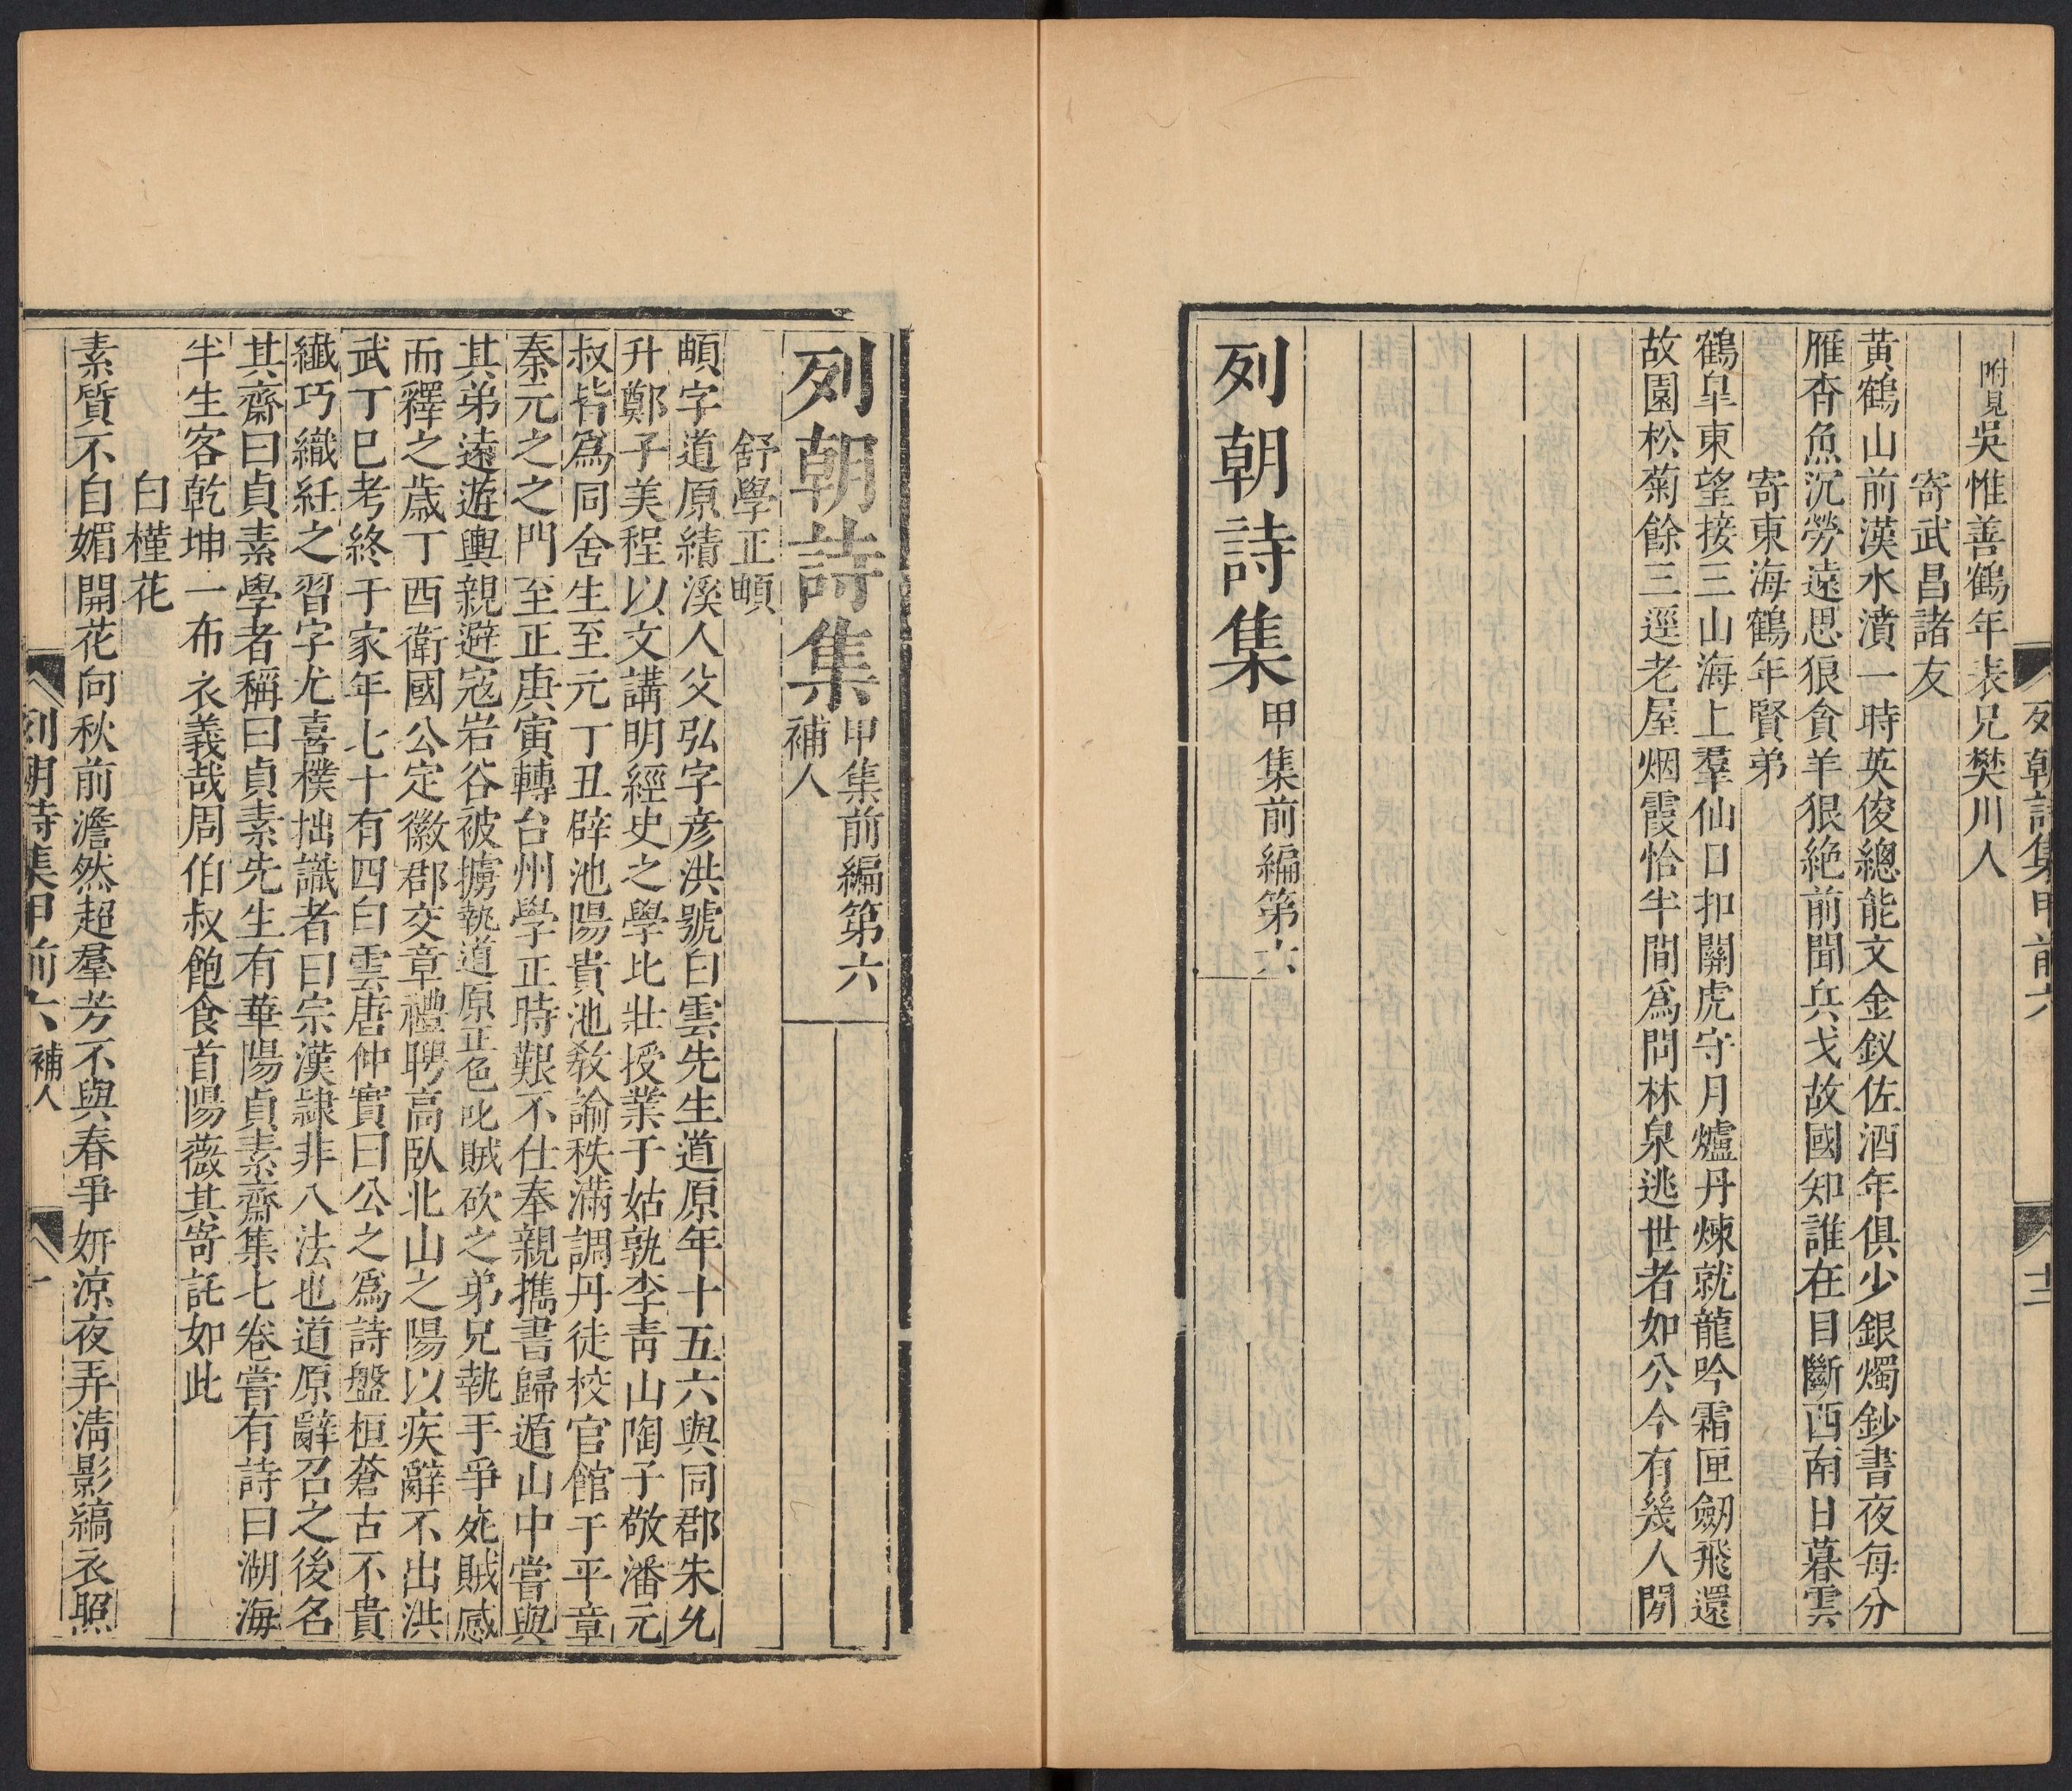 列朝詩集甲前六
十二
附見吳惟善鶴年表兄樊川人
寄武昌諸友
黃鶴山前漢水濆一時英俊總能文金釵佐酒年俱少銀燭鈔書夜每分
雁杳魚沉勞遠思狼貪羊狠絶前聞兵戈故國知誰在目斷西南日暮雲
寄東海鶴年賢弟
鶴皐東望接三山海上羣仙日扣關虎守月爐丹煉就龍吟霜匣劒飛還
故園松菊餘三逕老屋烟霞恰半間爲問林泉逃世者如公今有幾人閒
列朝詩集甲集前編第六
列朝詩集甲集前編第六
補人
舒學正頔
頔字道原績溪人父弘字彥洪號白雲先生道原年十五六與同郡朱允
升鄭子美程以文講明經史之學比壯授業于姑孰李青山陶子敬潘元
叔皆爲同舍生至元丁丑辟池陽貴池敎諭秩滿調丹徒校官館于平章
秦元之之門至正庚寅轉台州學正時艱不仕奉親攜書歸遁山中嘗與
其弟遠遊輿親避宼岩谷被擄執道原正色叱賊砍之弟兄執手爭死賊感
而釋之歲丁酉衛國公定徽郡交章禮聘高臥北山之陽以疾辭不出洪
武丁巳考終于家年七十有四白雲唐仲實曰公之爲詩盤桓蒼古不貴
纖巧織紝之習字尤喜樸拙識者曰宗漢隷非八法也道原辭召之後名
其齋曰貞素學者稱曰貞素先生有華陽貞素齋集七卷嘗有詩曰湖海
半生客乾坤一布衣義哉周伯叔飽食首陽薇其寄託如此
白槿花
素質不自媚開花向秋前澹然超羣芳不與春爭妍涼夜弄清影縞衣照
列朝詩集甲前六補人
一